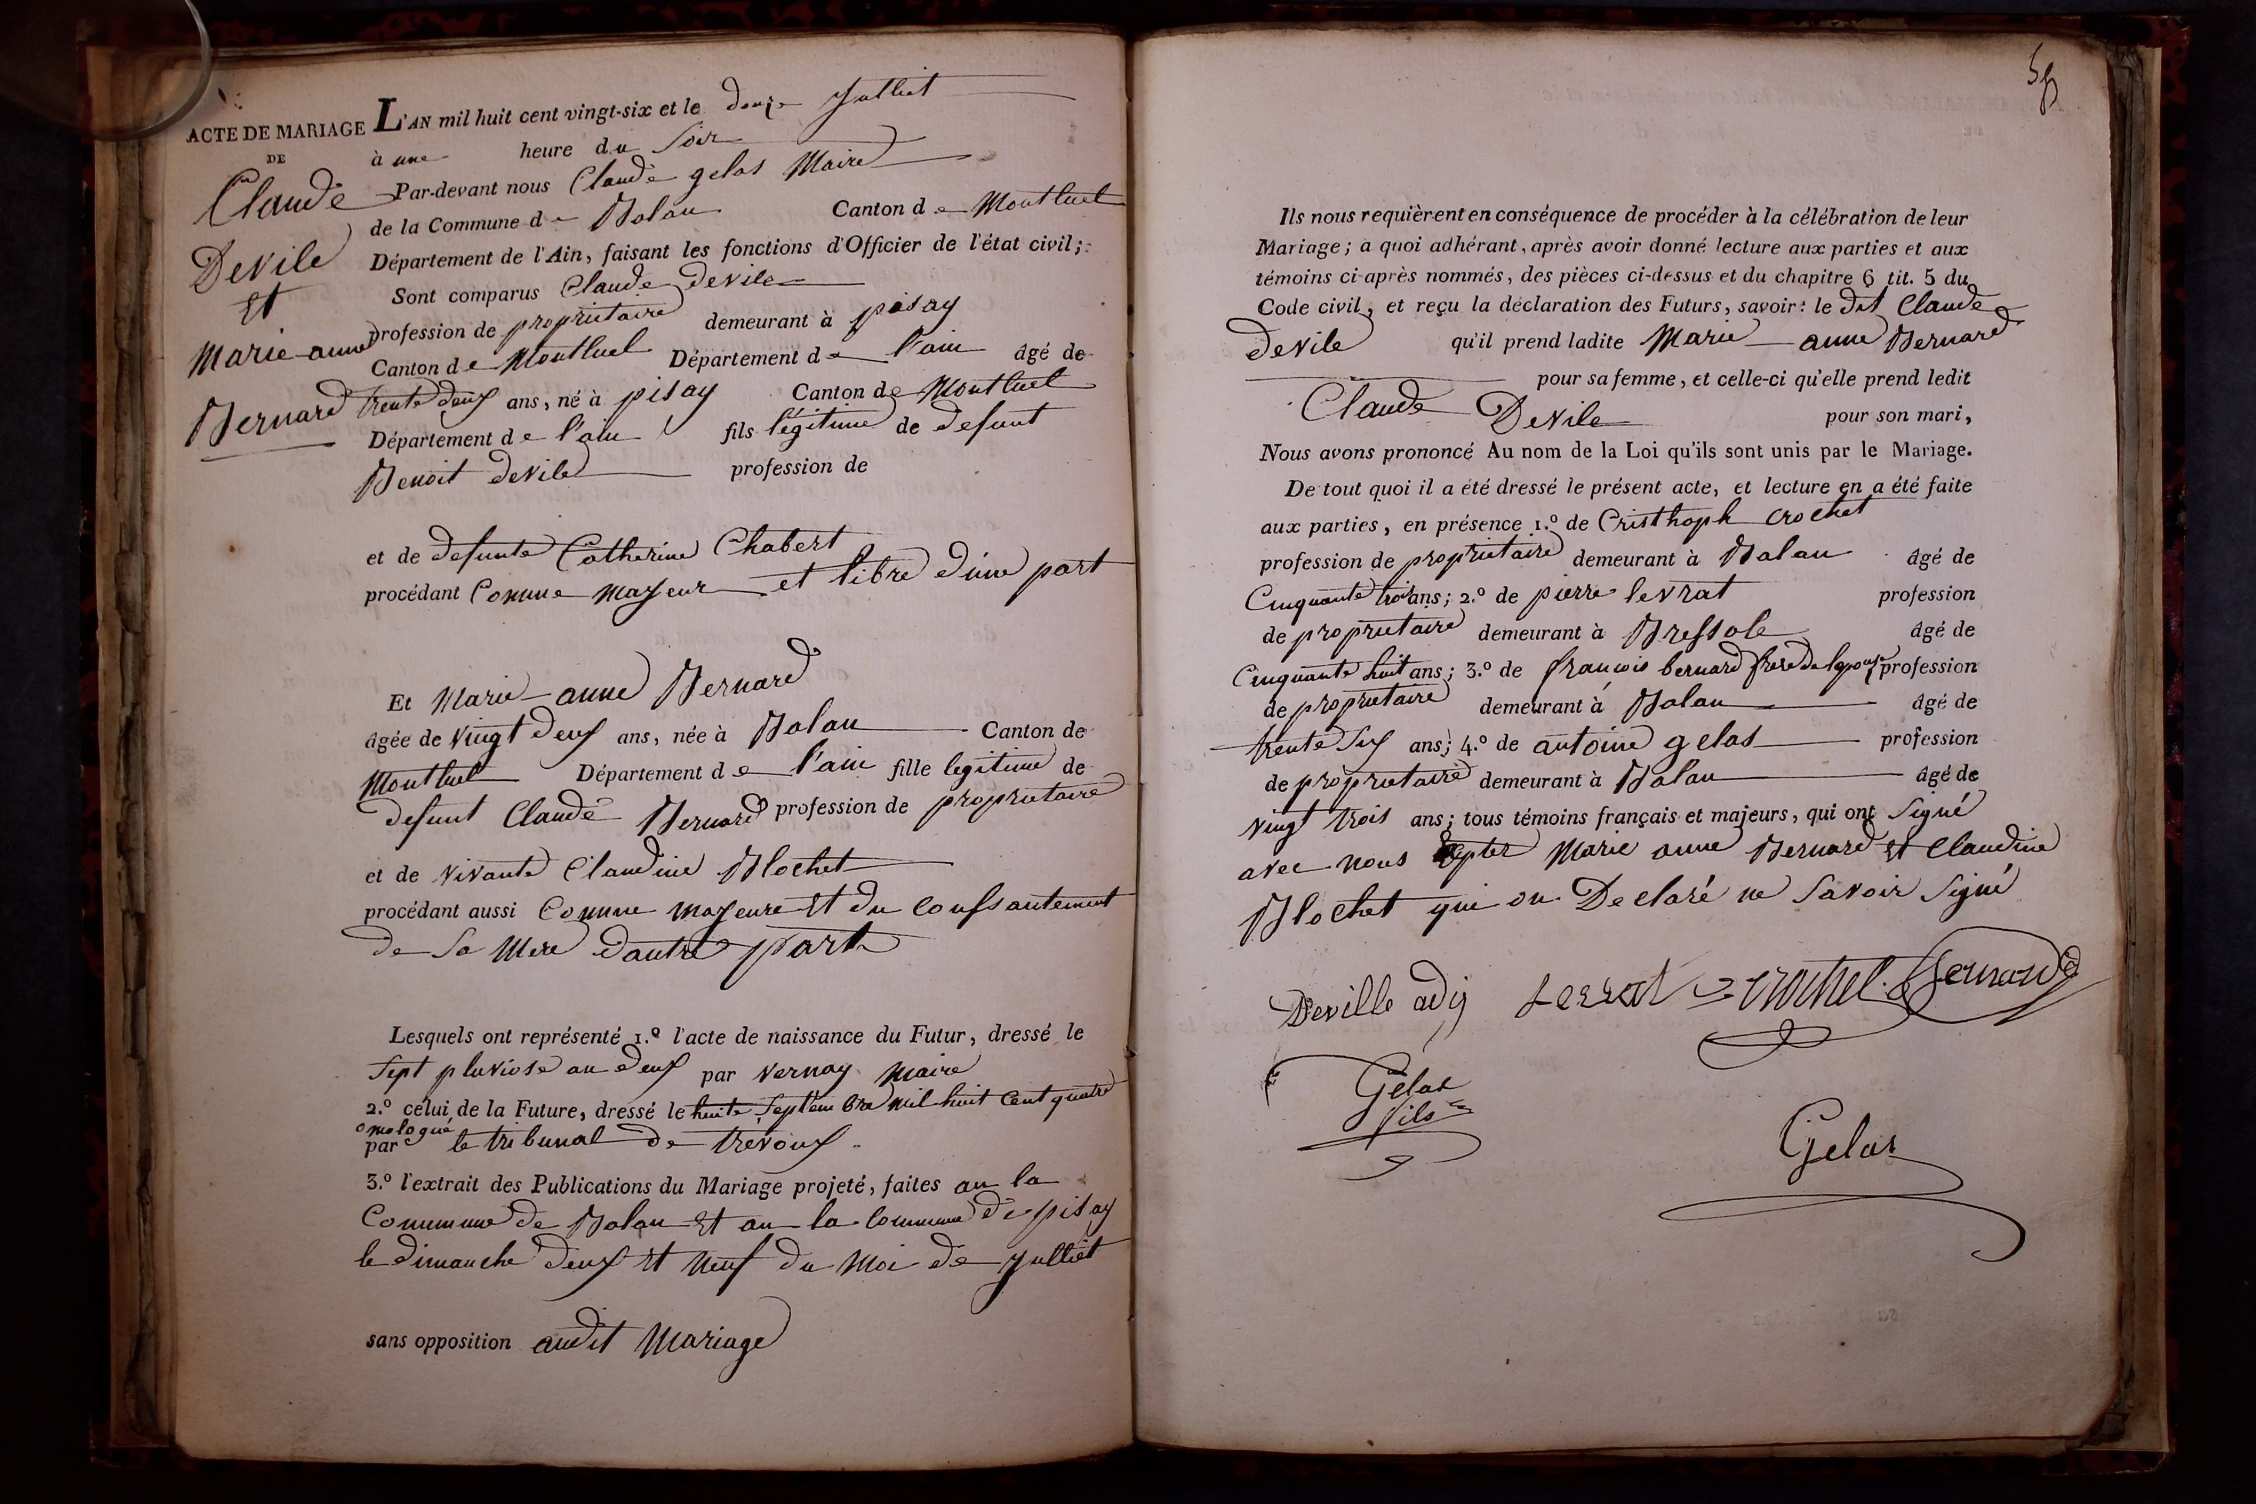 ACTE DE MARIAGE
DE
Claude
Devile
Et
Marie anne
Bernard
L'AN mil huit cent vingt-six et le douze Julliet
à une heure du Soir
Par-devant nous Claude gelas Maire
de la Commune de Balan Canton de Montluel
Département de l'Ain, faisant les fonctions d'Officier de l'état civil;
Sont comparus Claude devile
profession de propriétaire demeurant à pisay
Canton de Montluel Département de l'ain âgé de
trente deux ans, né à pisay Canton de Montluel
Département de l'ain fils légitime de defunt
Benoit devile profession de
et de defunte Catherine Chabert
procédant Comme mayeur et libre d'une part
Et Marie anne Bernard
âgée de vingt deux ans, née à Balan Canton de
Montluel Département de l'ain fille legitime de
defunt Claude Bernard profession de propriétaire
et de vivante Claudine Blochet
procédant aussi Comme mayeure Et du consantement
de Sa Mere dautre part
Lesquels ont représenté 1.º l'acte de naissance du Futur, dressé le
Sept pluviose an deux par vernay maire
2.º celui de la Future, dressé le huite Septembre mil huit Cent quatre
omologué
par le tribunal de trévoux
3.º l'extrait des Publications du Mariage projeté, faites an la
Commune de Balan Et an la Commune de pisay
le dimanche deux Et neuf du Moi de Julliet
sans opposition audit Mariage
58
Ils nous requièrent en conséquence de procéder à la célébration de leur
Mariage; à quoi adhérant, après avoir donné lecture aux parties et aux
témoins ci-après nommés, des pièces ci-dessus et du chapitre 6 tit. 5 du
Code civil, et reçu la déclaration des Futurs, savoir: le dit Claude
devile qu'il prend ladite Marie anne Bernard
pour sa femme, et celle-ci qu'elle prend ledit
Claude Devile pour son mari,
Nous avons prononcé Au nom de la Loi qu'ils sont unis par le Mariage.
De tout quoi il a été dressé le présent acte, et lecture en a été faite
aux parties, en présence 1.º de Cristhoph crochet
profession de propriétaire demeurant à Balan âgé de
Cinquante trois ans; 2.º de pierre levrat profession
de propriétaire demeurant à Bressole âgé de
Cinquante huit ans; 3.º de françois bernard frere de lepouse profession
de propriétaire demeurant à Balan âgé de
trente Six ans; 4.º de antoine gelas profession
de propriétaire demeurant à Balan âgé de
vingt trois ans; tous témoins français et majeurs, qui ont Signé
avec nous Marie anne Bernard Et Claudine
Blochet qui on Declaré ne Savoir Signé
Deville adj Levrat Crochet Bernard
Gelas
fils
Gelas